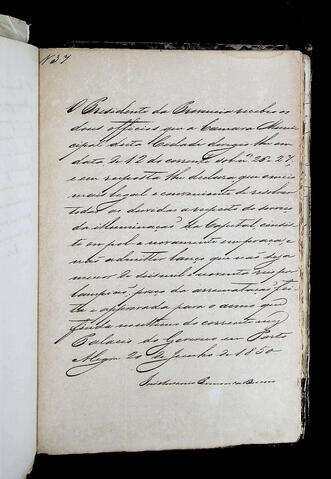 N 37.
O Presidente da Provincia recebeu os
dous officios que a Camara Muni
cipal desta Cidade dirigio-lhe em
data de 12 do corrente sob nos 26 e 27
e em resposta lhe declara que o meio
mais legal e conveniente de resolver
todas as duvidas a respeito do serviço
da illuminação da Capital, consis
te em pol-o novamente em praça, e
não admittir lanço que não seja
menor de
lampião, preço da arrematação fei
ta e approvada para o anno que
finda no ultimo do corrente mez
Palacio do Governo em Porto
Alegre 20 de Junho de 1850